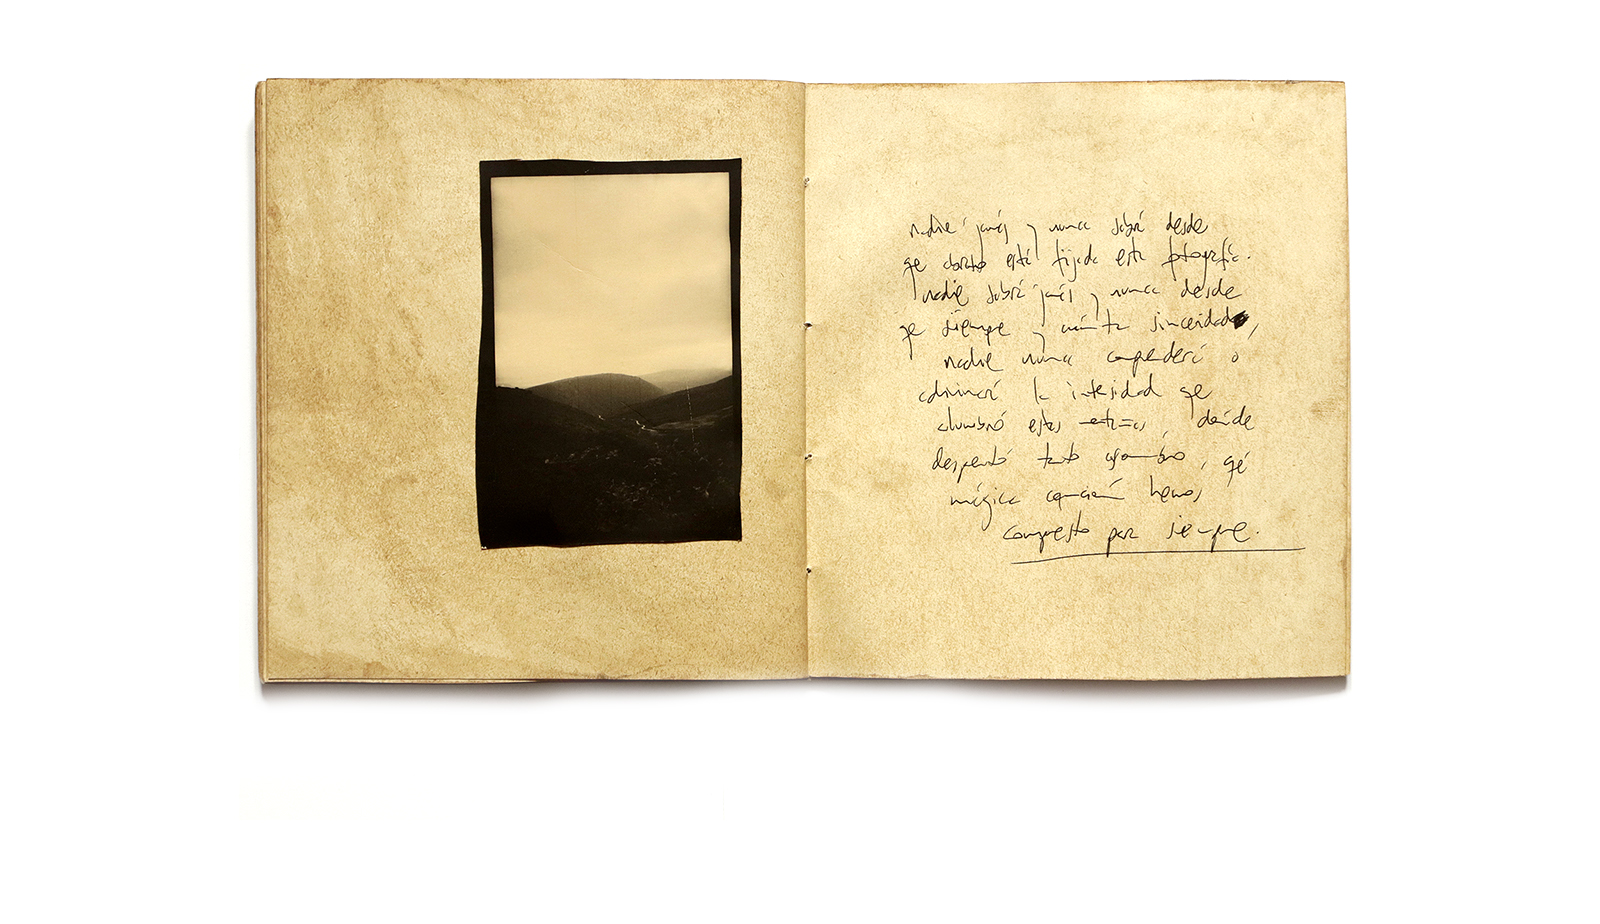 nadie jamás y nunca sabrá desde
qe abrazo está fijada esta fotografía.
nadie sabrá jamás y nunca desde
qe siempre y cuánta sinceridad,
nadie nunca comprenderá o
adivinará la intensidad qe
alumbró estas, desde
despertó tanto asombro, qé
mágica canción hemos
compuesto para siempre.